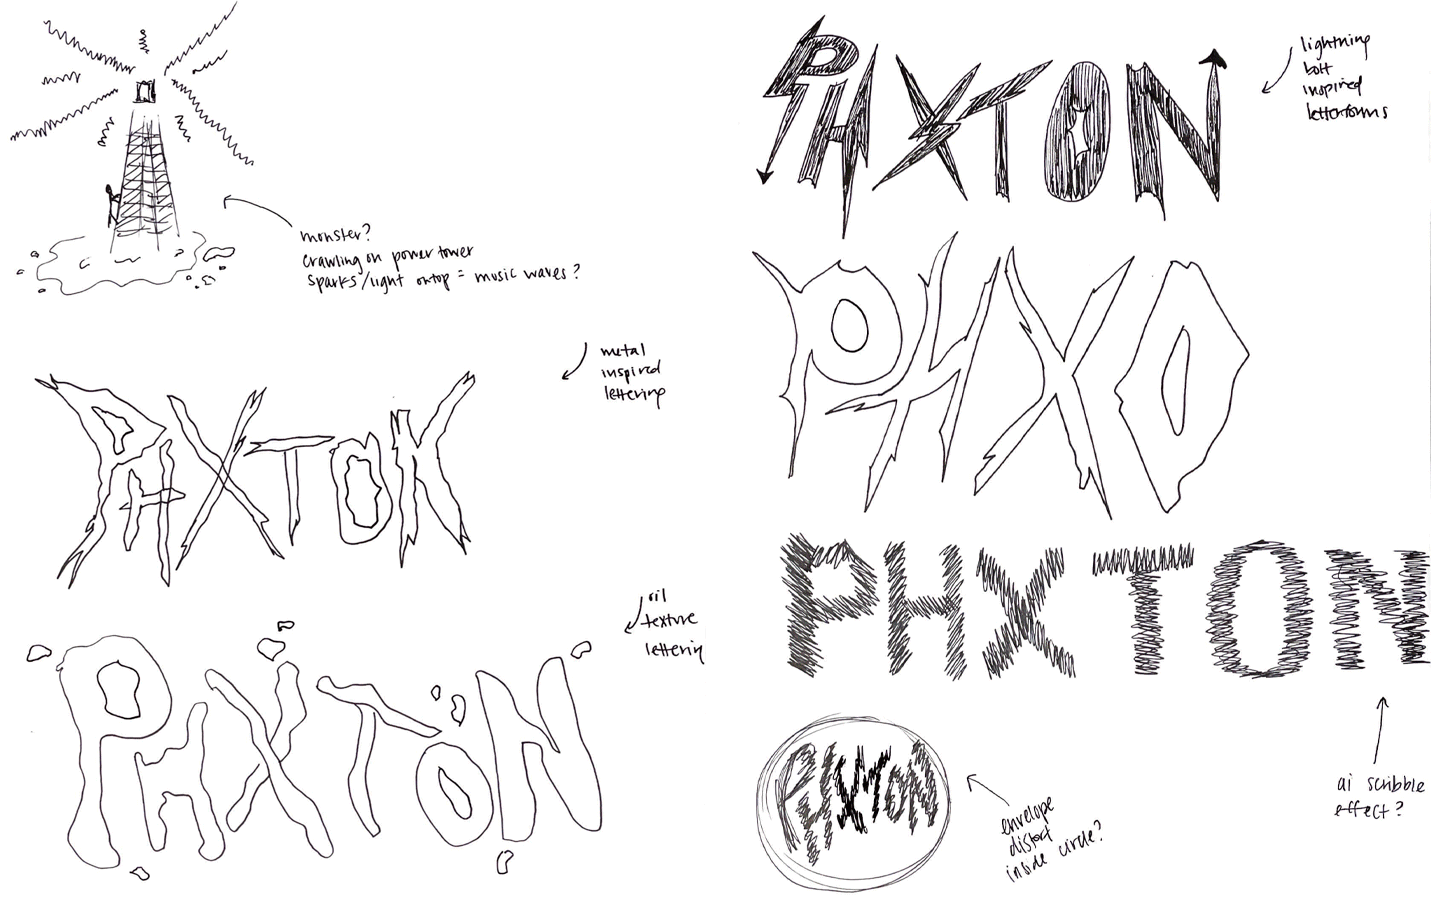 monster?
crawling on power tower
sparks/light ontop = music waves?
metal
inspired
lettering
PHXTON
oil
texture
lettering
PHXTON
PHXTON
lightning
bolt
inspired
letterforms
PHXO
PHXTON
ai scribble
effect?
PHXTON
envelope
distort
inside circle?